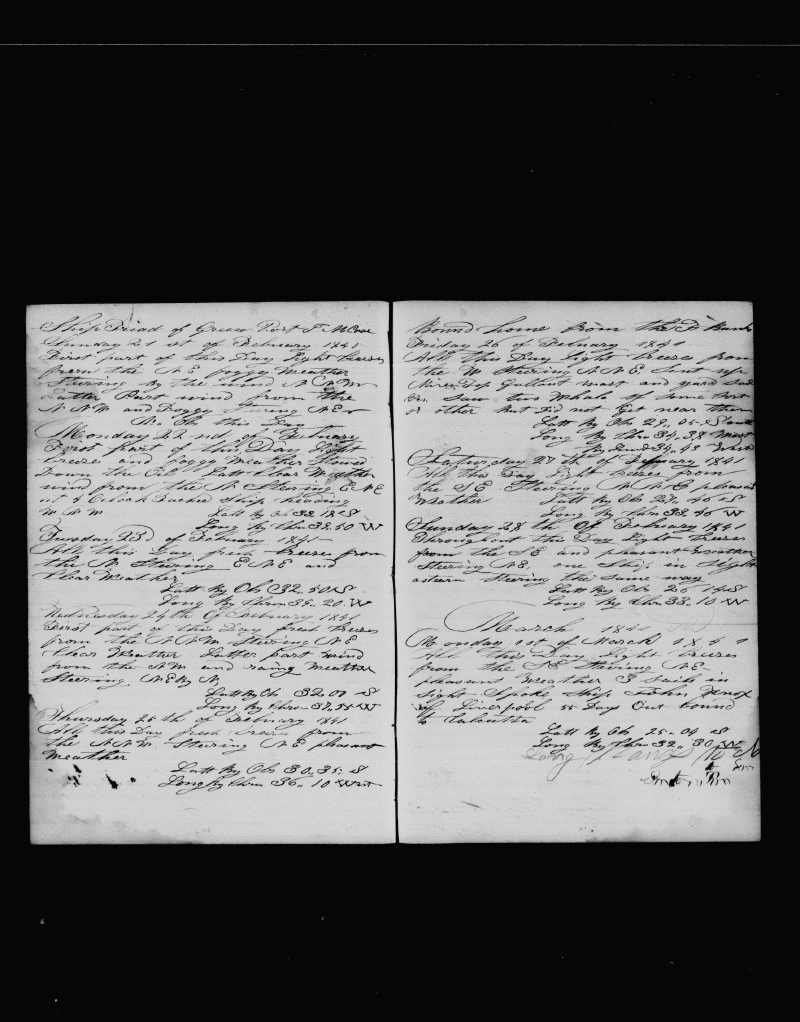 Ship Triad of Green Port J M Case
Sunday 21 st of February 1841
First part of this Day light breeses
from the N E foggy Weather
Steering by the wind N N W
Latter Part wind from the
N N W and Foggy Steering N E
No Ob this Day
Monday 22 nd of February
First part of this Day light
breeze and foggy Weather
Down the Oil Latt Clear Weather
wind from the N Stearing E N E
at 4 Clock Ship heading
W N W Latt By Ob 33.18 S
Long By Chro 39.50 W
Tuesday 23d of February 1841
All this Day fresh breeses from
the N Steering E N E and
Clear Weather
Latt By Obs 32.50 S
Long By Chrom 39.20 W
Wednesday 24th Of February 1841
First part of this Day fresh breeses
from the N N W Steering N E
Clear Weather Latter part wind
from the N W and rainy Weather
Steering N E By N
Latt By Obs 32.00 S
Long By Chro 37.55 W
Thursday 25th of February 1841
All this Day fresh breeses from
the N N W Stearing N E pleasant
Weather
Latt By Obs 30.35 S
Long By Chro 36.10 West
Bound home From the Bank
Friday 26 of February 1841
All this Day Light breeses from
the W Steering N N E Sent up
Top Gallant mast and yard
saw two Whale of some Sort
or other but Did not Get near them
Latt By Obs 29.05 South
Long By Chro 34.38 West
By 34.43 West
Saturday 27 th of February 1841
All this Day Light breeses from
the S E Steering N N E pleasant
Weather Latt By Ob 27.46 S
Long By Chro 33.46 W
Sunday 28 th Of February 1841
Throughout this Day Light breeses
from the S E and pleasant Weather
Steering N E one Ship in sight
astern steering the same way
Latt By Obs 26.14 S
Long By Chro 33.10 W
March 1841
Monday 1st of March 1841
All this Day Light breeses
from the S E Steering N E
pleasant Weather 3 Sails in
Sight Spoke Ship John Knox
of Liverpool 55 Days Out bound
to Calcutta
Latt By Ob 25.04 S
Long By Chro 32.30 W
Long